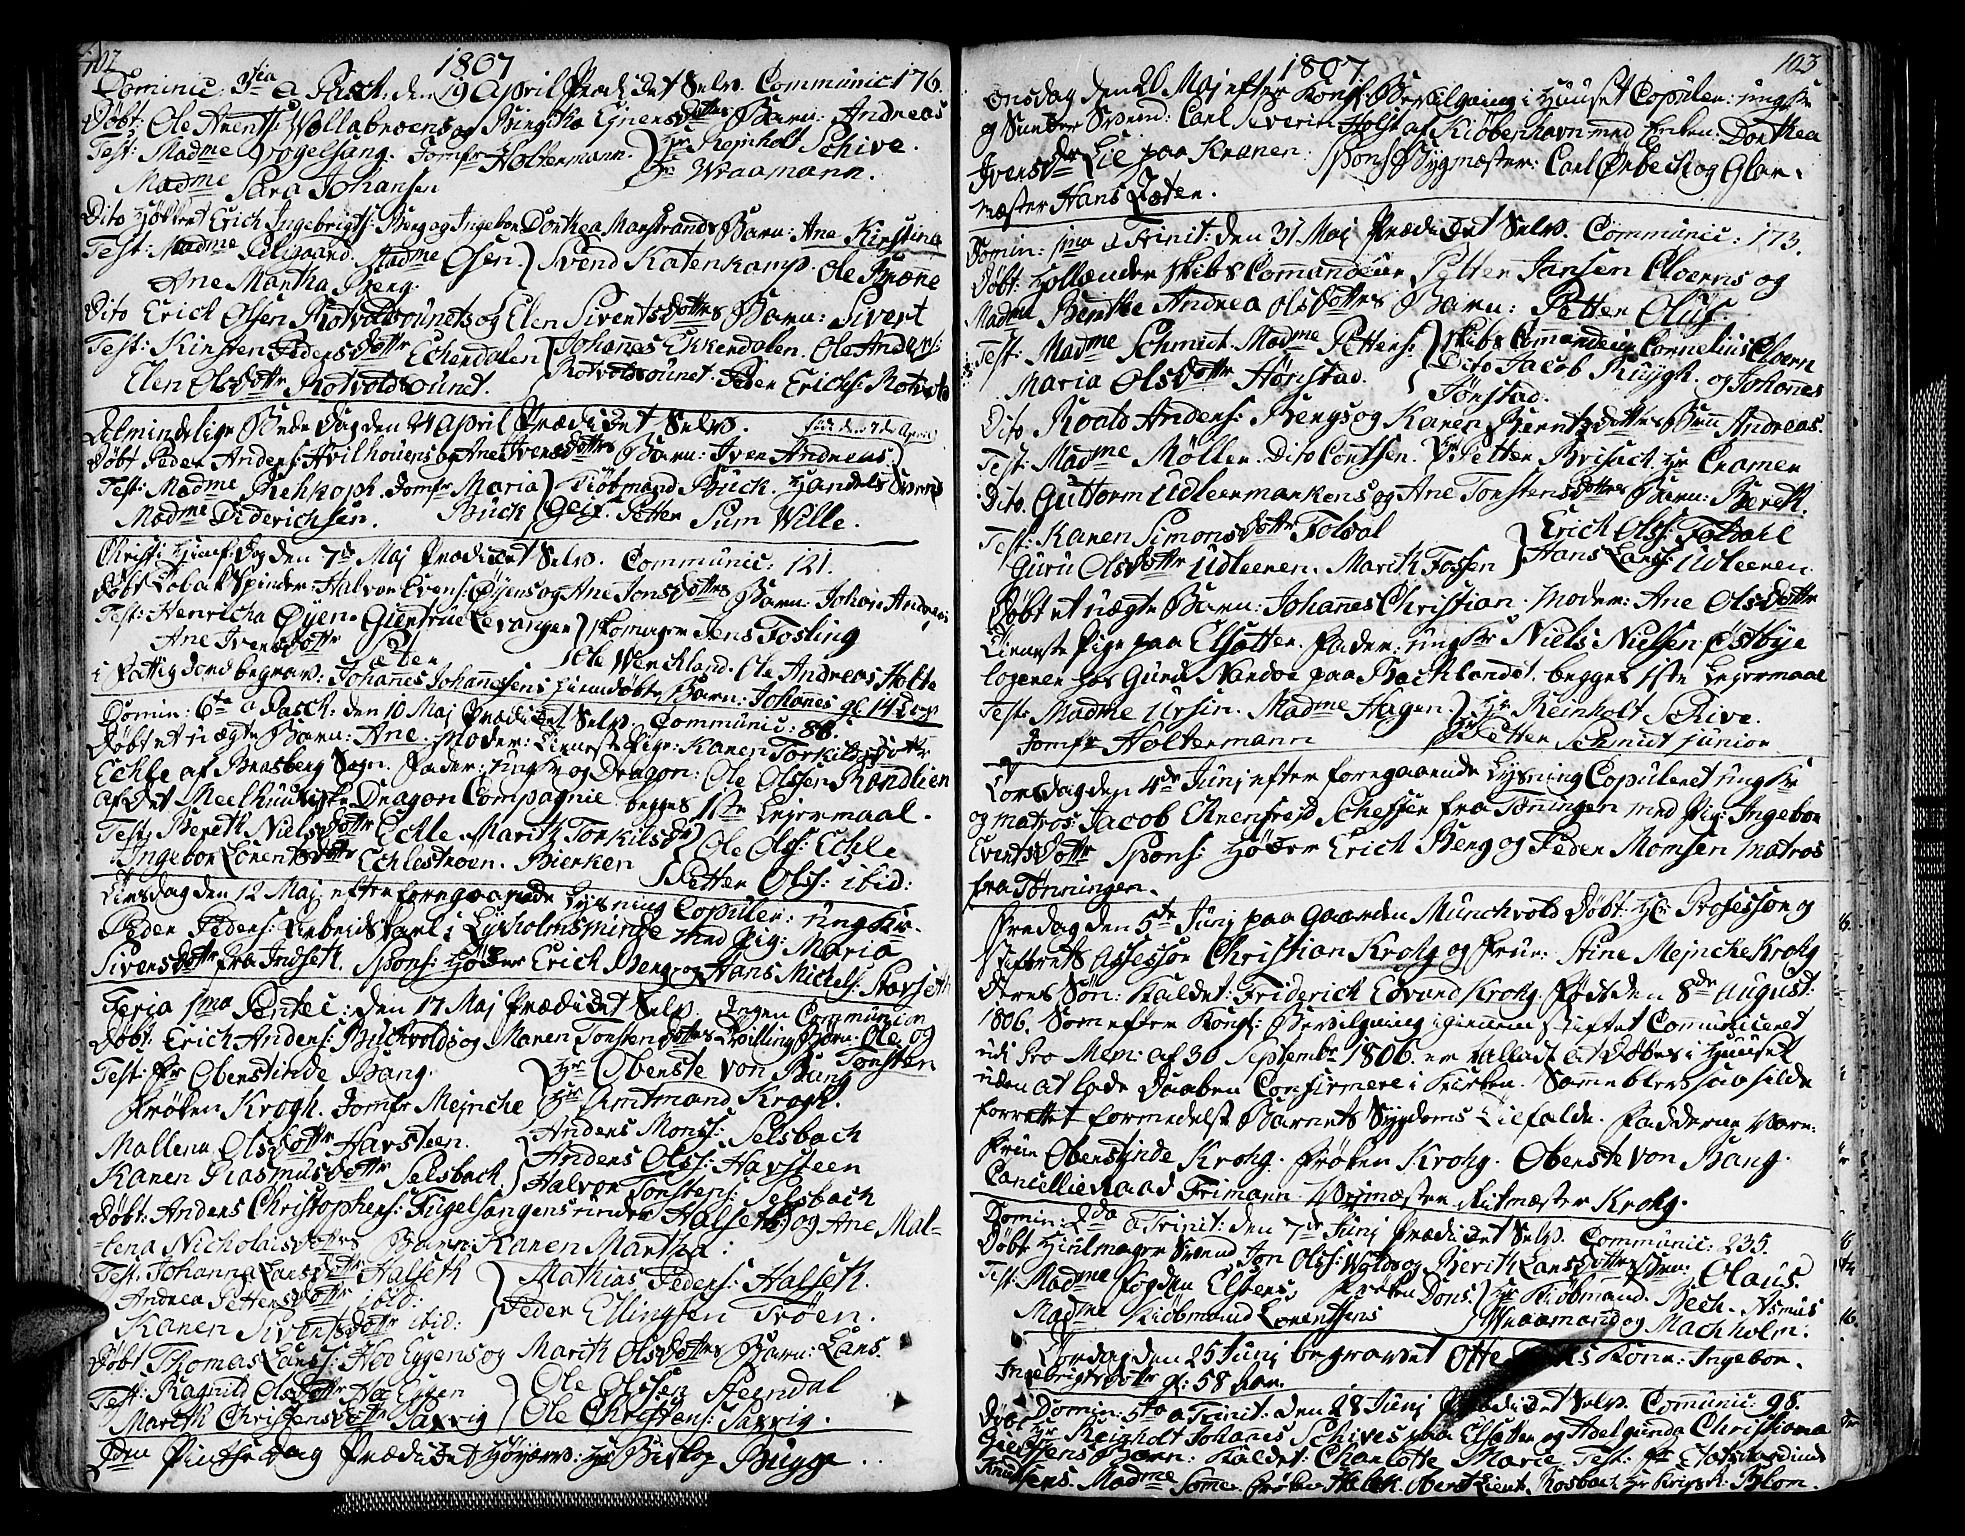 102
1807
Dominic: 3tia a Pasch: den 19 April Prædicket Selv. Communic: 176.
Døbt: Ole ArentS: Wollabroens og Birgitha Ejnersdotters Barn: Andreas
Test: Madme Vogelsang. Jomfr Holtermann. Hr Reinholt Schive.
Madme Sara Johansen Hr Wraamann.
Dito Høkker Erich Ingebrigts: Berg og Ingebor Dorthea Marstrands Barn: Ane Kirstina
Test: Madme Peligaard. Madme Osen Svend Katenkamp. Ole Krone
Ane Martha Berg.
Dito Erich Olsen Rotvoldsounets og Elen Sivertsdotters Barn: Sivert
Test: Kirsten Pedersdottr Eckerdalen Johanes Ekkerdalen. Ole Anders:
Elen Olsdottr Rotvoldsounet. Rotvoldsounet. Peder Erichs: Rotvold
Almindelige Bededag den 24 April Prædicket Selv. født den 7de April
Døbt Peder Anders: Hvilhouens og Ane Iversdotters Barn: Iver Andreas
Test: Madme Rehkoph. Jomfr Maria Kiøbmand Buck. Handels Svend
Madme Diderichsen. Buck Gelf. Petter Sum Wille.
Christi Himmelf: Dag den 7de Maj Prædicket Selv. Communic: 121.
Døbt Tobakspinder: Halvor Evens: Øyens og Ane Jonsdotters Barn: Johan Andreas
Test: Henricha Øyen. Giertrue Levanger Skomager Jens Fosling
Ane Iversdottr Sæter Ole Werckland. Ole Andreas Holte
i Fattig Jord begrav: Johanes Johannesens hiemdøbte Barn: Johanes gl 14 Dage
Domin: 6te a Pasch: den 10 Maj Prædicket Selv. Communic: 86.
Døbt et uægte Barn: Ane. Moder: Tieneste Pige: Karen Torkildsdottr
Echle af Brasberg Sogn. Fader: ungkr og Dragon: Ole Olsen Randlien
af det Meelhuuske Dragon Compagnie. begges 1ste Lejermaal.
Test: Bereth Nielsdottr Echle. Marith Torkilsdr Ole Ols: Echle
Ingebor Lorentsdottr Echlestroen. Bierken Petter Ols: ibid:
Tirsdag den 12 Maj efter foregaaende Lysning Copuler: ungkr.
Peder Peders: Arbeidskarl i Lysholmsminde med Pig: Maria
Siversdottr fra Indseth. Spons: Høker Erich Berg og Hans Michels: Stavseth
Feria 1ma Pentec: den 17 Maj Prædicket Selv. Ingen Communion
Døbt: Erich Anders: Buchvolds og Maren Torstensdotters Tvilling Børn: Ole og
Torsten
Test: Fr Oberstinde Bang. Hr Oberste von Bang
Frøken Krogh. Jomfr Mejncke Hr Amtmand Krogh.
Mallena Olsdottr Havsteen. Anders Mons: Selsbach
Karen Rasmusdottr Selsbach Anders Ols: Havsteen
Halvor Torstens: Selsbach
Døbt: Anders Christophers: Fugelsangens under Halseth og Ane Mal-
-lena Nicholaisdotters Barn: Karen Martha:
Test: Johanna Larsdottr Halseth Mathias Peders: Halseth.
Andrea Pettersdottr ibid: Peder Ellingsen Trøen.
Karen Sivertsdottr ibid:
Døbt Thomas Lars: Hoe Eggens og Marith Olsdotters Barn: Lars.
Test: Ragnild Olsdottr Hoe Eggen Ole Olsen Steendal
Marith Christensdottr Saxvig Ole Christens: Saxvig.
2den Pintse Dag Prædicket Høyærv: Hr Biskop Bugge.
103
1807
Onsdag den 20 Maj efter Kongl: Bevilgning i Huuset Copuler: ungkr
og Snedker Svend: Carl Severin Holst af Kiøbenhavn med Enken: Dorthea
Iversdr Lie paa Kranen: Spons: Bygmester: Carl Ørbeck og Glar-
mester Hans Sæter.
Domin: 1ma a Trinit: den 31 Maj Prædicket Selv. Communic: 173.
Døbt: Hollænder Skibs Commandeur Petter Jansen Cloerns og
Madm Benthe Andrea Olsdotters Barn: Petter Oluf.
Test: Madme Schmidt. Madme Petters: Skibs Commandeur Cornelius Cloern
Maria Olsdottr Hørstad. Dito Jacob Kuygh. og Johanes
Jønstad.
Dito Roald Anders: Bergs og Karen Berntsdotters Barn Andreas.
Test: Madme Möller. Dito Contsen. Hr Petter Brisack. Hr Cramer
Dito. Guttorm Udleermarkens og Ane Torstensdotters Barn: Bereth.
Test: Karen Simonsdottr Foldal Erich Ols: Foldahl
Guru Olsdottr Udleeren. Marith Fossen Hans Lars: Udleeren.
Døbt et uægte Barn: Johanes Christian. Moder: Ane Olsdottr
Tieneste Pige paa Elsætter. Fader: ungkr Niels Nielsen Østbye
logerer hos Guru Nardoe paa Backlandet. begges 1ste Lejermaal
Test: Madme Ursin. Madme Hagen. Hr Reinholt Schive.
Jomfr Holtermann Hr Petter Schmit junior
Torsdag den 4de Junj efter foregaaende Lysning Copuleret ungkr
og matros: Jacob Ehrenfrejd Scheffer fra Tønningen med Pig: Ingebor
Evertsdottr Spons: Høker Erich Berg og Peder Momsen matros
fra Tønningen.
Fredag den 5te Junj paa Gaarden Munchvold Døbt: Hr Professor og
Stiftsrets Assessor Christian Krohg og Frue: Stine Mejncke Krohg
Deres Søn: Kaldet: Friderich Edvard Krohg. Født den 8de August:
1806. Som efter Kongl: Bevilgning igiennem Stiftet Communiceret
udi Pro Mem: af 30 September 1806. er tilladt at Døbes i Huuset
uden at lade Daaben Confirmere i Kirken. Samme blev saa silde
forrettet formedelst Barnets Sygdoms Tilfælde. Fadderne Vare:
Frue Oberstinde Krohg. Frøken Krohg. Oberste von Bang.
Cancellieraad Frimann. Ritmester Krohg.
Domin: 2da a Trinit: den 7de Junj Prædicket Selv. Communic: 235.
Døbt Hiulmager Svend Jon Ols: Wolds og Berith Larsdotters Søn: Olaus.
Test: Madme Fogden Elsters. Frøken Dons: Hr Kiøbmand. Bech. Asmus
Madme Kiøbmand Lorentsens Wraamand og Machholm.
Torsdag den 25 Junj begravet Otte Kone: Ingebor.
Ingebrigtsdottr gl: 58 Aar.
Domin: 5ta a Trinit: den 28 Junj Prædicket Selv. Communic: 98.
Døbt Hr Reinholt Johanes Schives paa Elsæter og Adelgunda Christiana
Barn: Kaldet: Charlotte Marie. Test: Fr Etatsraadinde
Knudtsens. Madme Somme. Frøken Oberst Lieut: Rosbach Hr Blom.